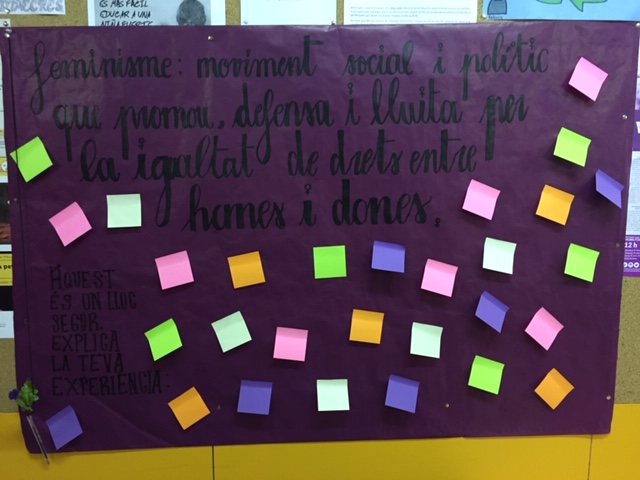 ÉS MÁS FÁCIL
EDUCAR A UNA
feminisme: moviment social i polític
que promou, defensa i lluita per
la igualtat de drets entre
homes i dones.
AQUEST
ÉS UN LLOC
SEGUR,
EXPLICA
LA TEVA
EXPERIÈNCIA:
12 h